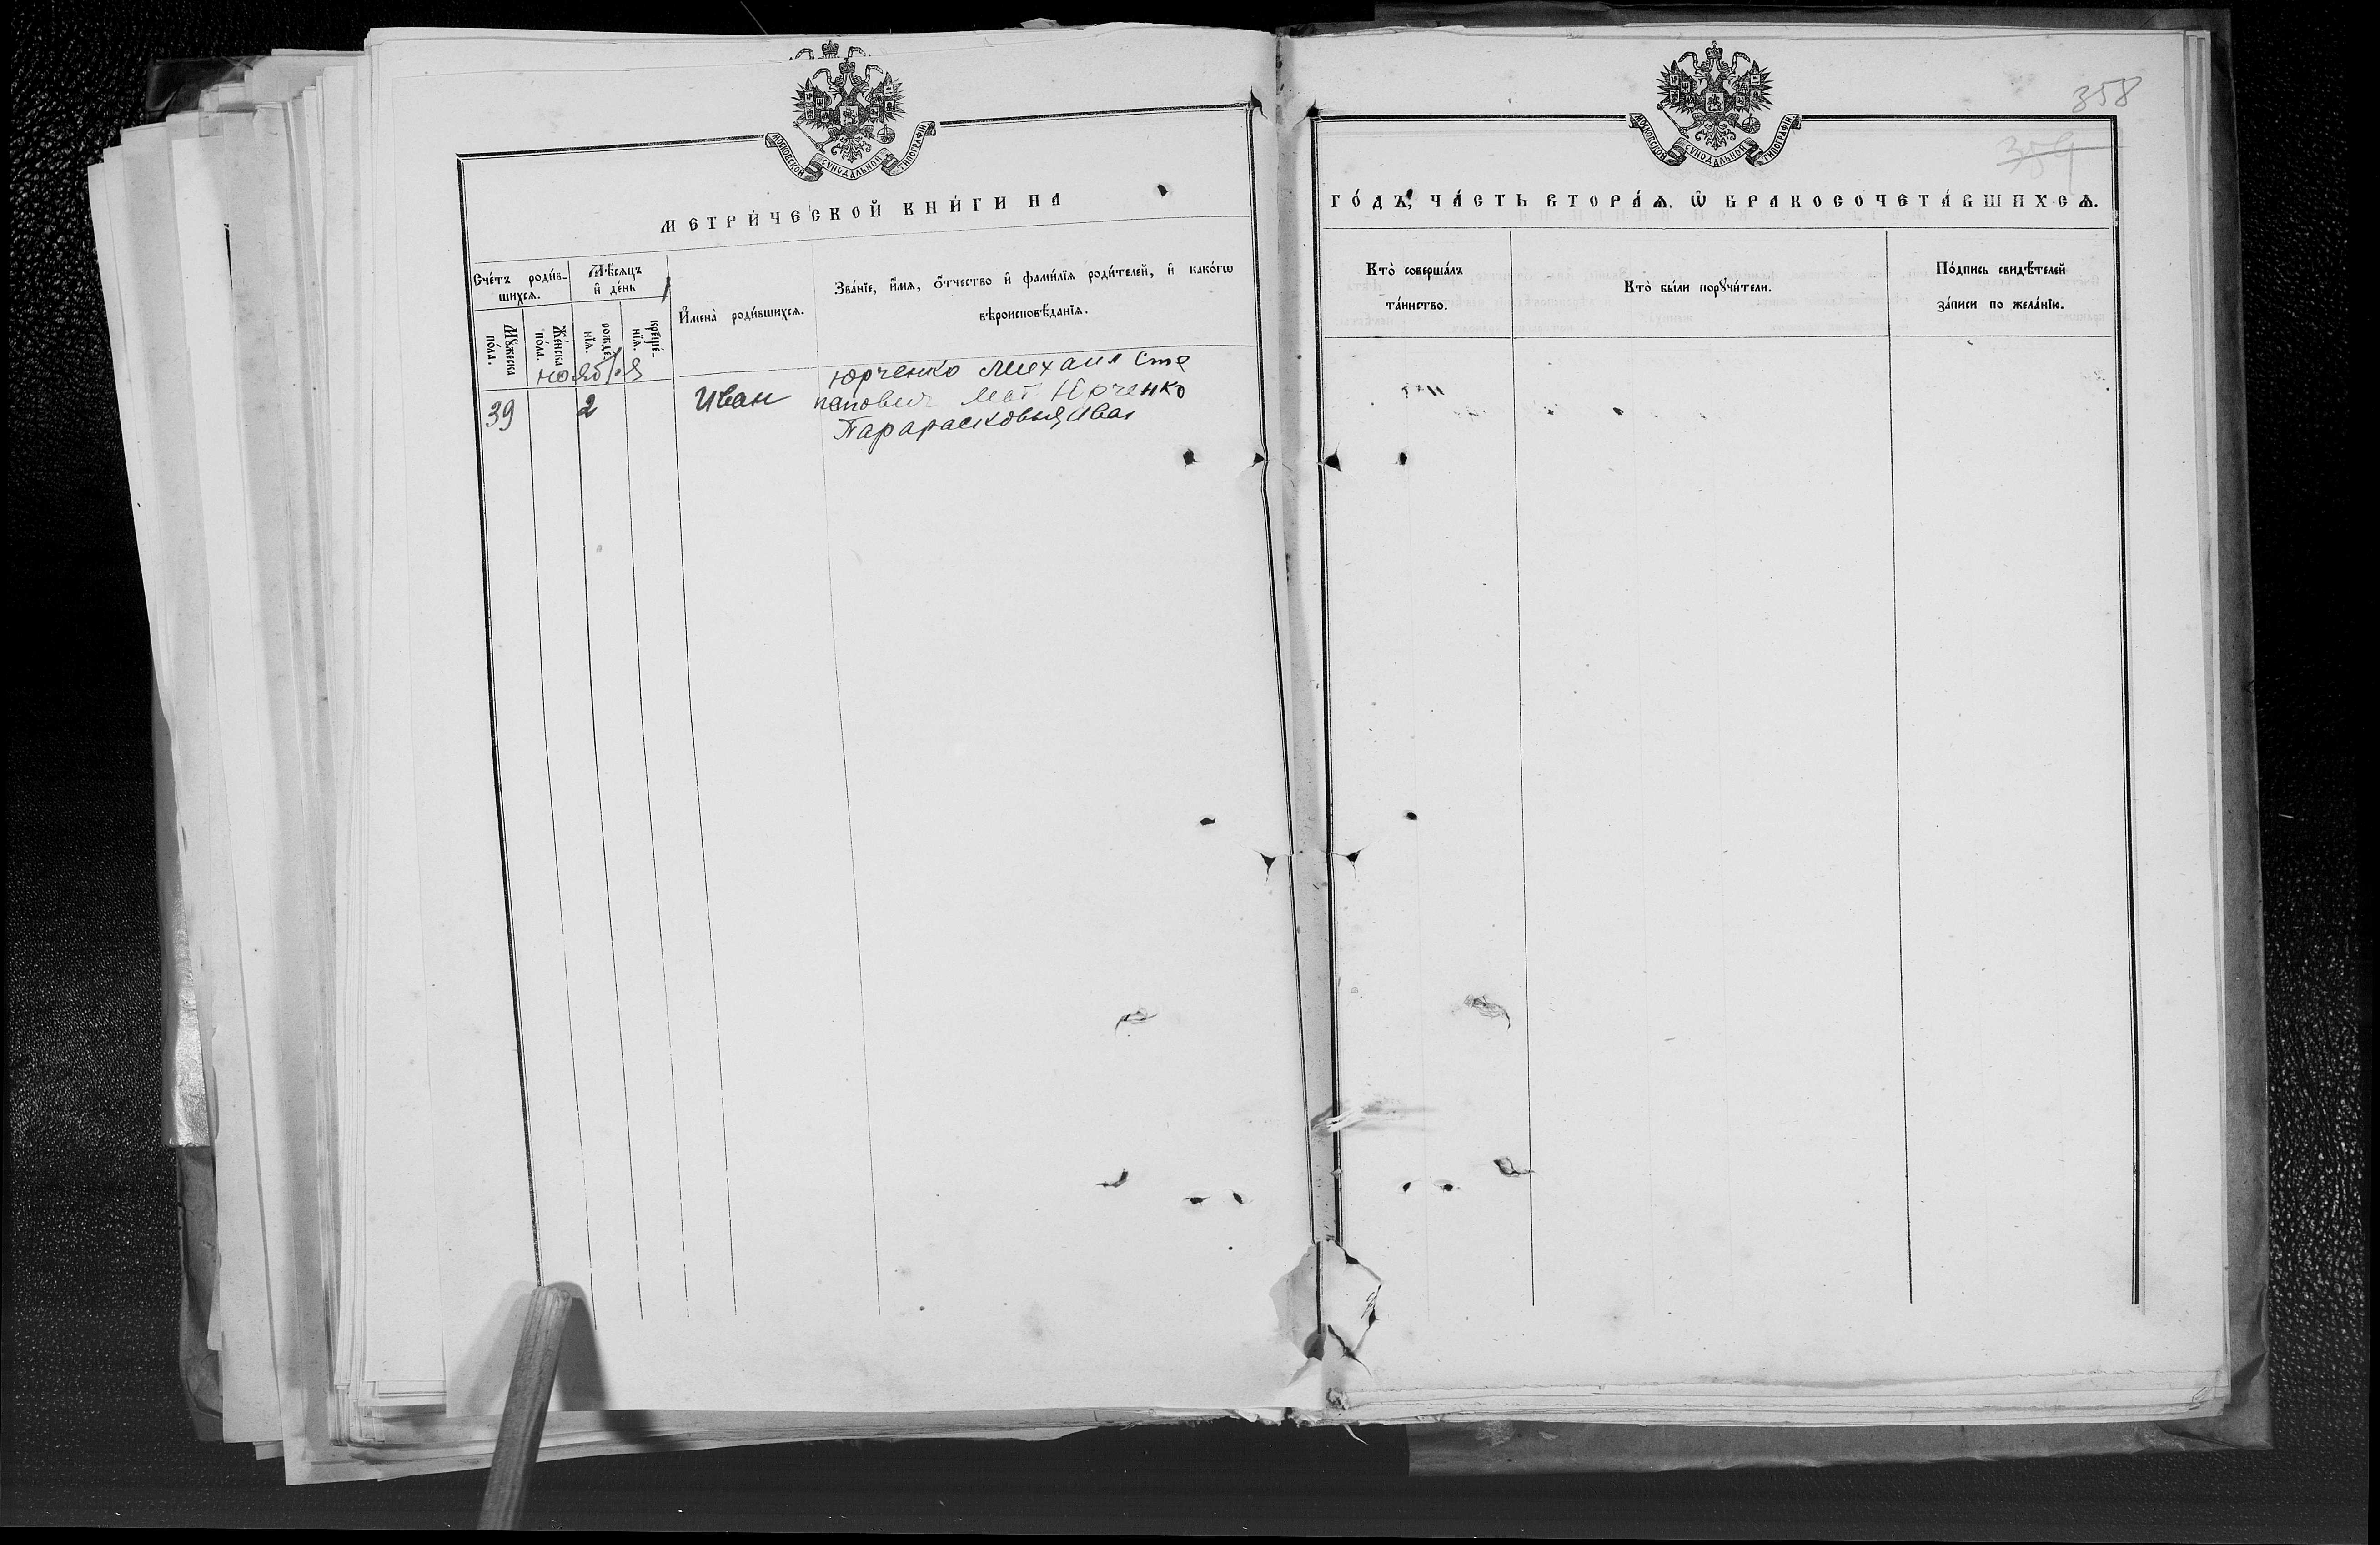 МОСКОВСКОЙ СѴНОДАЛЬНОЙ ТИПОГРАФІИ
МЕТРИ́ЧЕСКОЙ КНИ́ГИ НА
Сче́тъ роди́в-
шихсѧ.
Мѣ́сѧцъ
и҆ де́нь
И҆мена̀ роди́вшихсѧ.
Зва́нїе, и҆́мѧ, ѻ҆́тчество и҆ фами́лїѧ роди́телей, и҆ како́гѡ
вѣроисповѣ́данїѧ.
Мꙋ́жеска
по́ла.
Же́нска
по́ла.
рожде-
нїѧ.
креще́-
нїѧ.
ноября
39 2 Иван
Юрченко Михаил Сте
папович Мат Юрченко
Парарасковья Иван
358
359
МОСКОВСКОЙ СѴНОДАЛЬНОЙ ТИПОГРАФІИ
ГО́ДЪ, ЧА́СТЬ ВТОРА́Ѧ, Ѡ҆ БРАКОСОЧЕТА́ВШИХСѦ.
Кто̀ соверша́лъ
та́инство.
Кто̀ бы́ли порꙋчи́тели.
По́дпись свидѣ́телей
за́писи по жела́нїю.